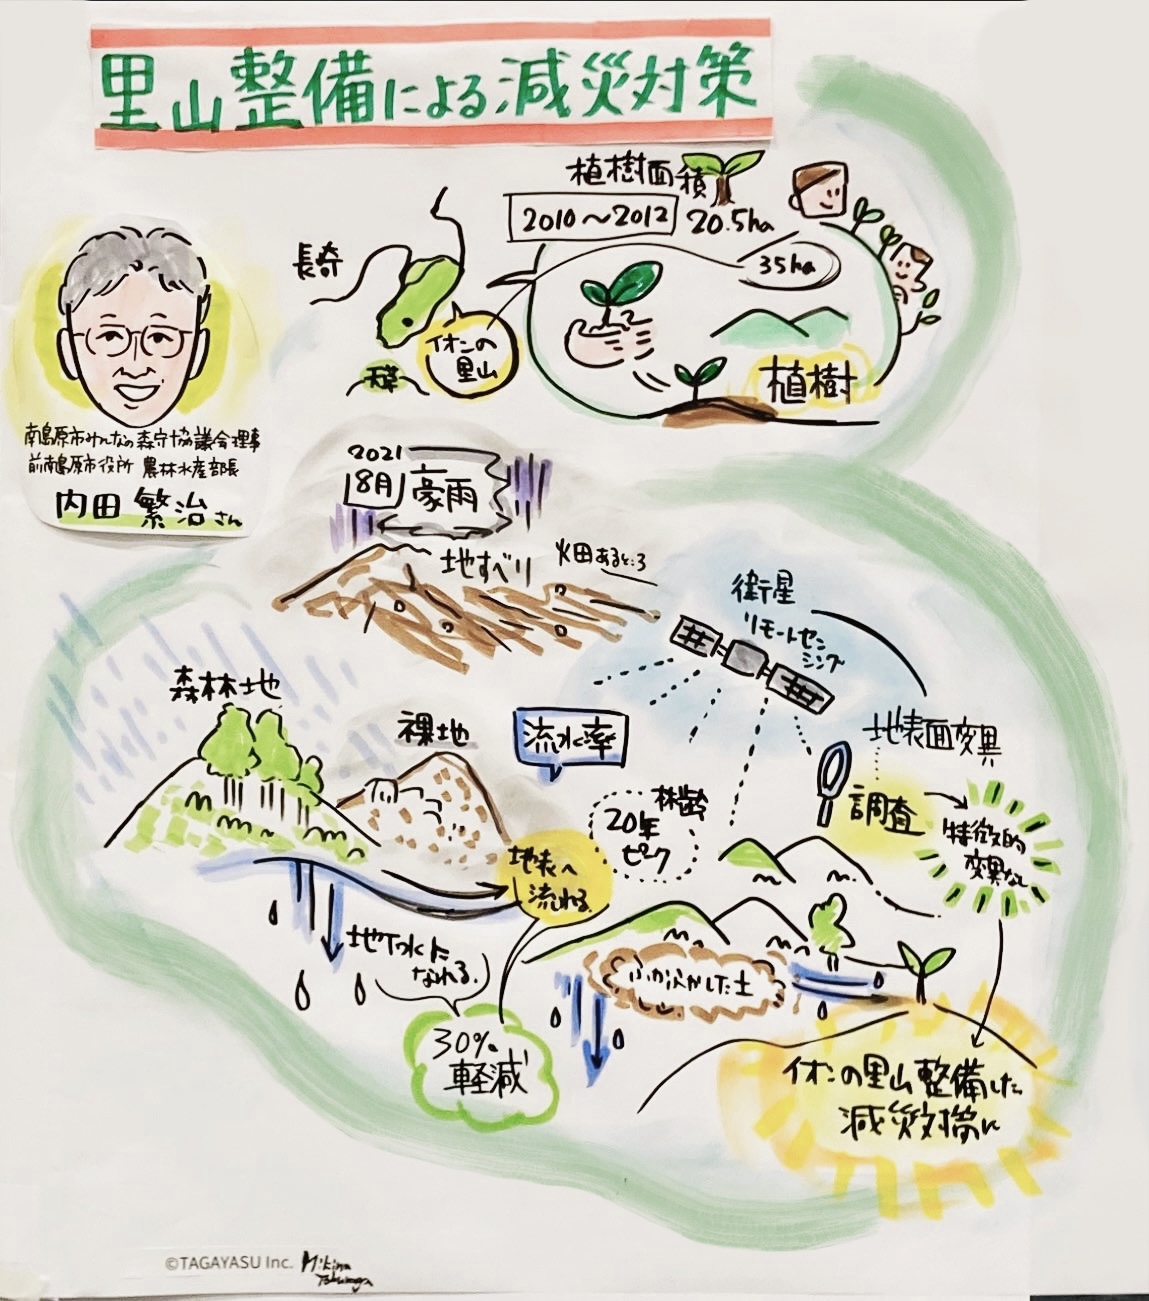 里山整備による減災対策
植樹面積
2010～2012 20.5ha
35ha
長崎
イオンの
里山
天草
植樹
南島原市みんなの森守協議会理事
前南島原市役所 農林水産部長
内田 繁治さん
2021
8月 豪雨
地すべり
火田あるところ
衛星
リモートセン
シング
地表面変異
調査
特徴的
変異なし
森林地
裸地
流水率
林齢
20年
ピーク
地表へ
流れる
地下水に
なれる。
30%
軽減
ふかふかした土
イオンの里山整備した
減災対策に
©TAGAYASU Inc.